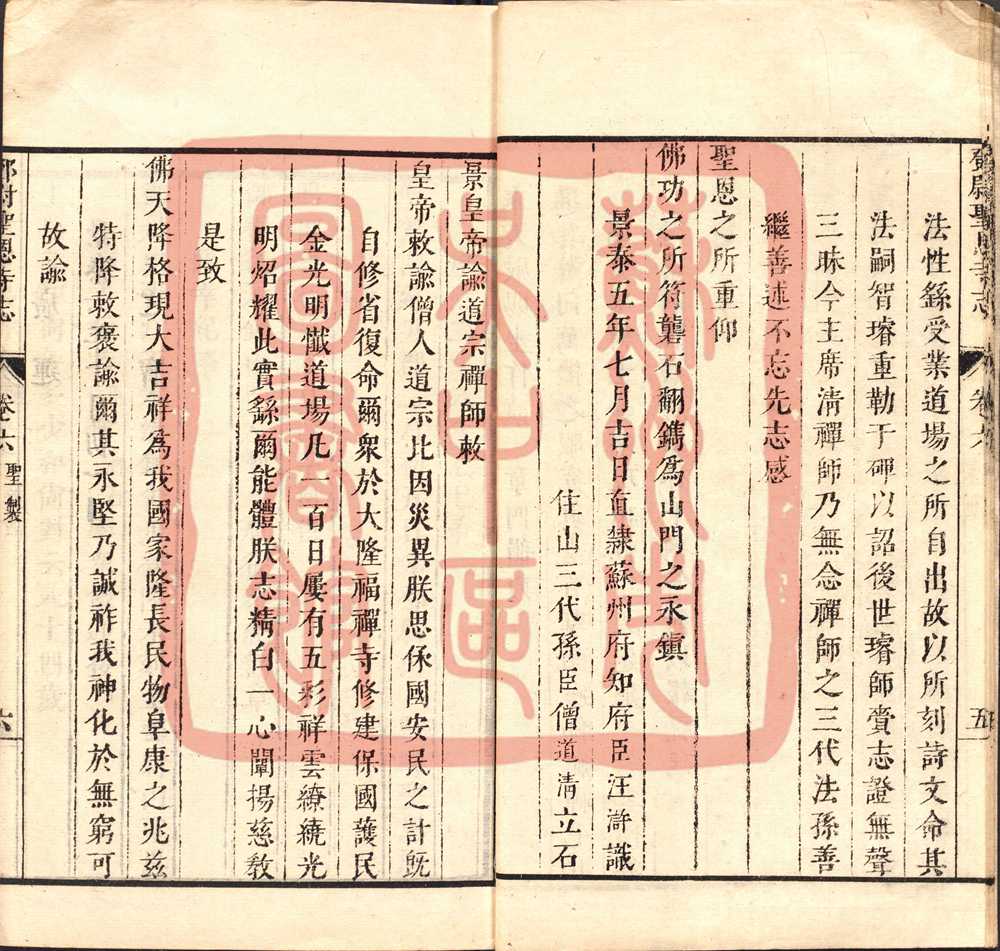 鄧尉聖恩寺志
卷六
五
法性繇受業道場之所自出故以所刻詩文命其
法嗣智璿重勒于碑以詔後世璿師賫志證無聲
三昧今主席清禪師乃無念禪師之三代法孫善
繼善述不忘先志感
聖恩之所重仰
佛功之所符礱石翻鐫為山門之永鎮
景泰五年七月吉日直隸蘇州府知府臣汪滸識
住山三代孫臣僧道清立石
景皇帝諭道宗禪師敕
皇帝敕諭僧人道宗比因災異朕思保國安民之計旣
自修省復命爾衆於大隆福禪寺修建保國護民
金光明懺道場凡一百日屢有五彩祥雲繚繞光
明炤耀此實繇爾能體朕志精白一心闡揚慈敎
是致
佛天降格現大吉祥為我國家隆長民物阜康之兆兹
特降敕褒諭爾其永堅乃誠祚我神化於無窮可
故諭
鄧尉聖恩寺志
卷六
聖製
六
蘇州市
文史中區
圖書館